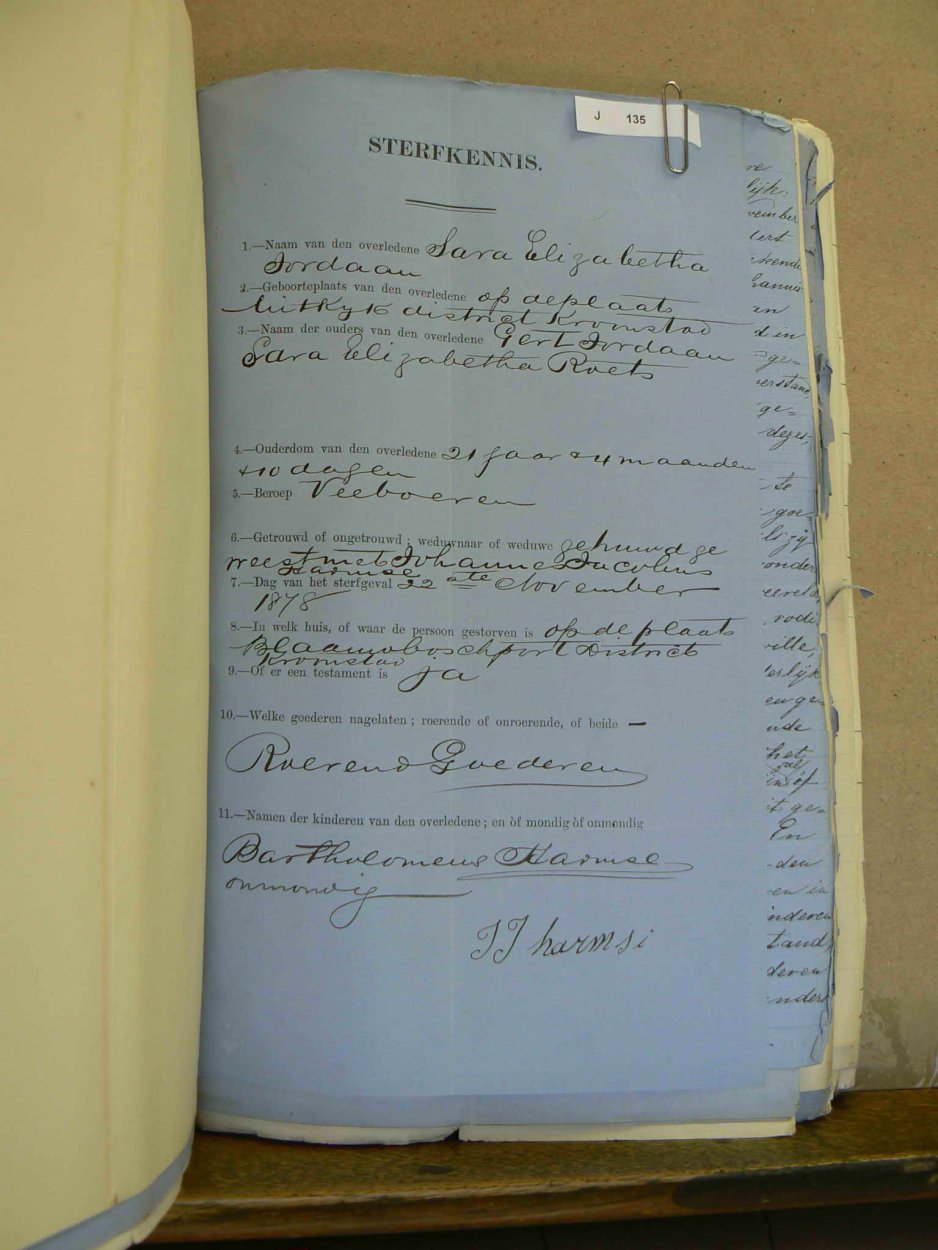 J 135
STERFKENNIS.
1.—Naam van den overledene Sara Elizabetha
Jordaan
2.—Geboorteplaats van den overledene op de plaats
Uitkyk district Kroonstad
3.—Naam der ouders van den overledene Gert Jordaan
Sara Elizabetha Roets
4.—Ouderdom van den overledene 21 jaar & 4 maanden
+10 dagen
5.—Beroep Veeboeren
6.—Getrouwd of ongetrouwd; weduwnaar of weduwe gehuwd ge
weest met Johannes Jacobus
Harmse
7.—Dag van het sterfgeval 22 ste November
1878
8.—In welk huis, of waar de persoon gestorven is op de plaats
District
Kroonstad
9.—Of er een testament is ja
10.—Welke goederen nagelaten; roerende of onroerende, of beide —
Roerend Goederen
11.—Namen der kinderen van den overledene; en òf mondig òf onmondig
Bartholomeus Harmse
onmondig
JJ harmsi